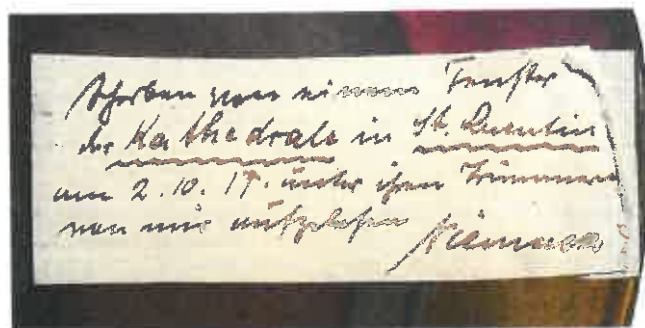 Scherben von einem Fenster
der Kathedrale in St. Quentin
am 2.10.17. unter ihren Trümmern
von mir aufgelesen